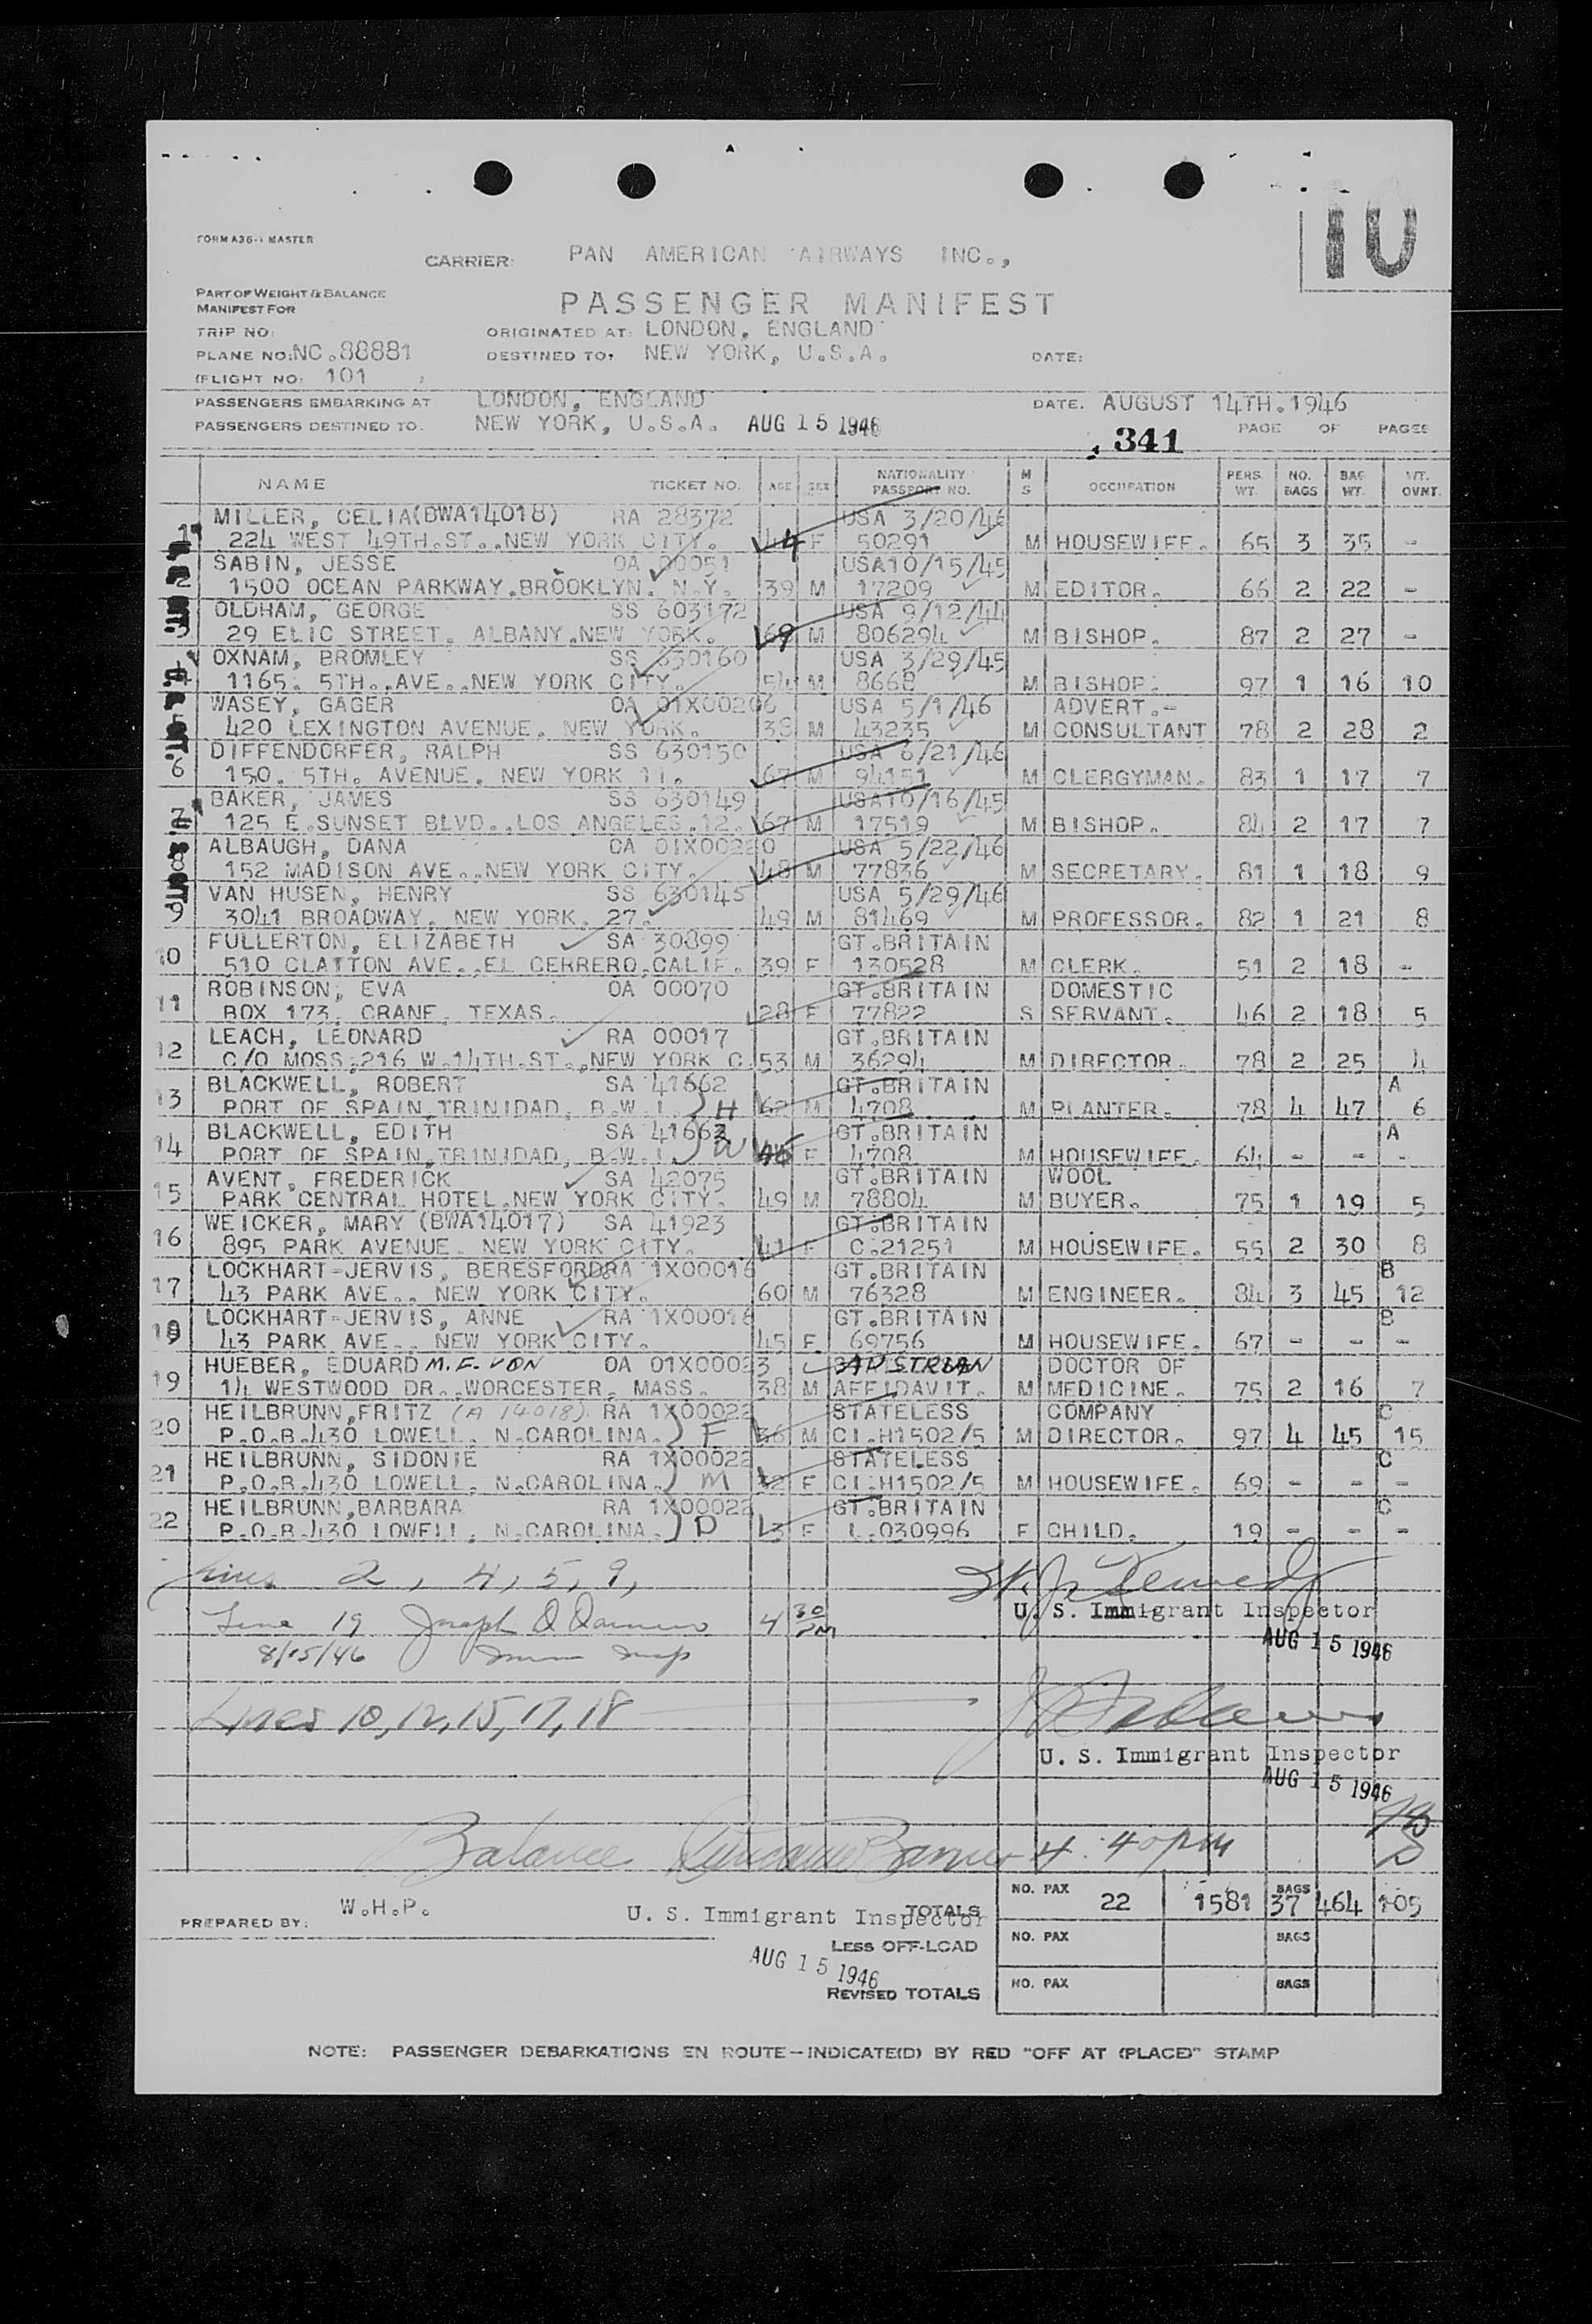 10
FORM A36-1 MASTER
CARRIER: PAN AMERICAN AIRWAYS INC.,
PART OF WEIGHT & BALANCE
MANIFEST FOR
PASSENGER MANIFEST
TRIP NO: ORIGINATED AT: LONDON, ENGLAND
PLANE NO: NC.88881 DESTINED TO: NEW YORK, U.S.A. DATE:
(FLIGHT NO: 101 )
PASSENGERS EMBARKING AT LONDON, ENGLAND DATE. AUGUST 14TH.1946
PASSENGERS DESTINED TO. NEW YORK, U.S.A. AUG 15 1946 341 PAGE OF PAGES
NAME TICKET NO. AGE SEX NATIONALITY PASSPORT NO. M S OCCUPATION PERS. WT. NO. BAGS BAG WT. WT. OVNT.
MILLER, CELIA(BWA14018) RA 28372 USA 3/20/46
1 224 WEST 49TH.ST..NEW YORK CITY. 44 F 50291 M HOUSEWIFE. 65 3 35 -
SABIN, JESSE OA 00051 USA10/15/45
2 1500 OCEAN PARKWAY.BROOKLYN. N.Y. 39 M 17209 M EDITOR. 66 2 22 -
OLDHAM, GEORGE SS 603172 USA 9/12/44
3 29 ELIC STREET. ALBANY.NEW YORK. 69 M 806294 M BISHOP. 87 2 27 -
OXNAM, BROMLEY SS 630160 USA 3/29/45
4 1165. 5TH..AVE..NEW YORK CITY. 54 M 8668 M BISHOP. 97 1 16 10
WASEY, GAGER OA 01X00206 USA 5/1/46 ADVERT.-
5 420 LEXINGTON AVENUE. NEW YORK. 38 M 43235 M CONSULTANT 78 2 28 2
DIFFENDORFER, RALPH SS 630150 USA 6/21/46
6 150. 5TH. AVENUE. NEW YORK 11. 67 M 94151 M CLERGYMAN. 83 1 17 7
BAKER, JAMES SS 630149 USA10/16/45
7 125 E.SUNSET BLVD..LOS ANGELES.12. 67 M 17519 M BISHOP. 84 2 17 7
ALBAUGH, DANA OA 01X00220 USA 5/22/46
8 152 MADISON AVE..NEW YORK CITY. 48 M 77836 M SECRETARY. 81 1 18 9
VAN HUSEN, HENRY SS 630145 USA 5/29/46
9 3041 BROADWAY. NEW YORK. 27. 49 M 81469 M PROFESSOR. 82 1 21 8
FULLERTON, ELIZABETH SA 30899 GT.BRITAIN
10 510 CLAYTON AVE..EL CERRERO.CALIF. 39 F 130528 M CLERK. 51 2 18 -
ROBINSON, EVA OA 00070 GT.BRITAIN DOMESTIC
11 BOX 173. CRANE. TEXAS. 28 F 77822 S SERVANT. 46 2 18 5
LEACH, LEONARD RA 00017 GT.BRITAIN
12 C/O MOSS.216 W.14TH.ST..NEW YORK C. 53 M 36294 M DIRECTOR. 78 2 25 4
BLACKWELL, ROBERT SA 41662 GT.BRITAIN A
13 PORT OF SPAIN.TRINIDAD, B.W.I. H 62 M 4708 M PLANTER. 78 4 47 6
BLACKWELL, EDITH SA 41663 GT.BRITAIN A
14 PORT OF SPAIN.TRINIDAD, B.W.I. W F 4708 M HOUSEWIFE. 64 - - -
AVENT, FREDERICK SA 42075 GT.BRITAIN WOOL
15 PARK CENTRAL HOTEL.NEW YORK CITY. 49 M 78804 M BUYER. 75 1 19 5
WEICKER, MARY (BWA14017) SA 41923 GT.BRITAIN
16 895 PARK AVENUE. NEW YORK CITY. 41 F C.21251 M HOUSEWIFE. 55 2 30 8
LOCKHART-JERVIS, BERESFORD RA 1X00016 GT.BRITAIN B
17 43 PARK AVE.. NEW YORK CITY. 60 M 76328 M ENGINEER. 84 3 45 12
LOCKHART-JERVIS, ANNE RA 1X00016 GT.BRITAIN B
18 43 PARK AVE.. NEW YORK CITY. 45 F 69756 M HOUSEWIFE. 67 - - -
HUEBER, EDUARD M.F. VON OA 01X00023 AUSTRIAN DOCTOR OF
19 14 WESTWOOD DR..WORCESTER. MASS. 38 M AFFIDAVIT. M MEDICINE. 75 2 16 7
HEILBRUNN,FRITZ (A 14018) RA 1X00022 STATELESS COMPANY C
20 P.O.B.430 LOWELL. N.CAROLINA. F 36 M CI.H1502/5 M DIRECTOR. 97 4 45 15
HEILBRUNN, SIDONIE RA 1X00022 STATELESS C
21 P.O.B.430 LOWELL. N.CAROLINA. M 32 F CI.H1502/5 M HOUSEWIFE. 69 - - -
HEILBRUNN,BARBARA RA 1X00022 GT.BRITAIN C
22 P.O.B.430 LOWELL. N.CAROLINA. D 3 F L.030996 F CHILD. 19 - - -
Lines 2, 4, 5, 9,
U. S. Immigrant Inspector
AUG 15 1946
Line 19 Joseph 4 30 PM
8/15/46 Imm Insp
Lines 10, 12, 15, 17, 18
U. S. Immigrant Inspector
AUG 15 1946
Balance 4:40 pm
PREPARED BY: W.H.P. U. S. Immigrant Inspector TOTALS NO. PAX 22 1581 BAGS 37 464 105
AUG 15 1946
LESS OFF-LOAD NO. PAX BAGS
REVISED TOTALS NO. PAX BAGS
NOTE: PASSENGER DEBARKATIONS EN ROUTE—INDICATE(D) BY RED "OFF AT (PLACE)" STAMP